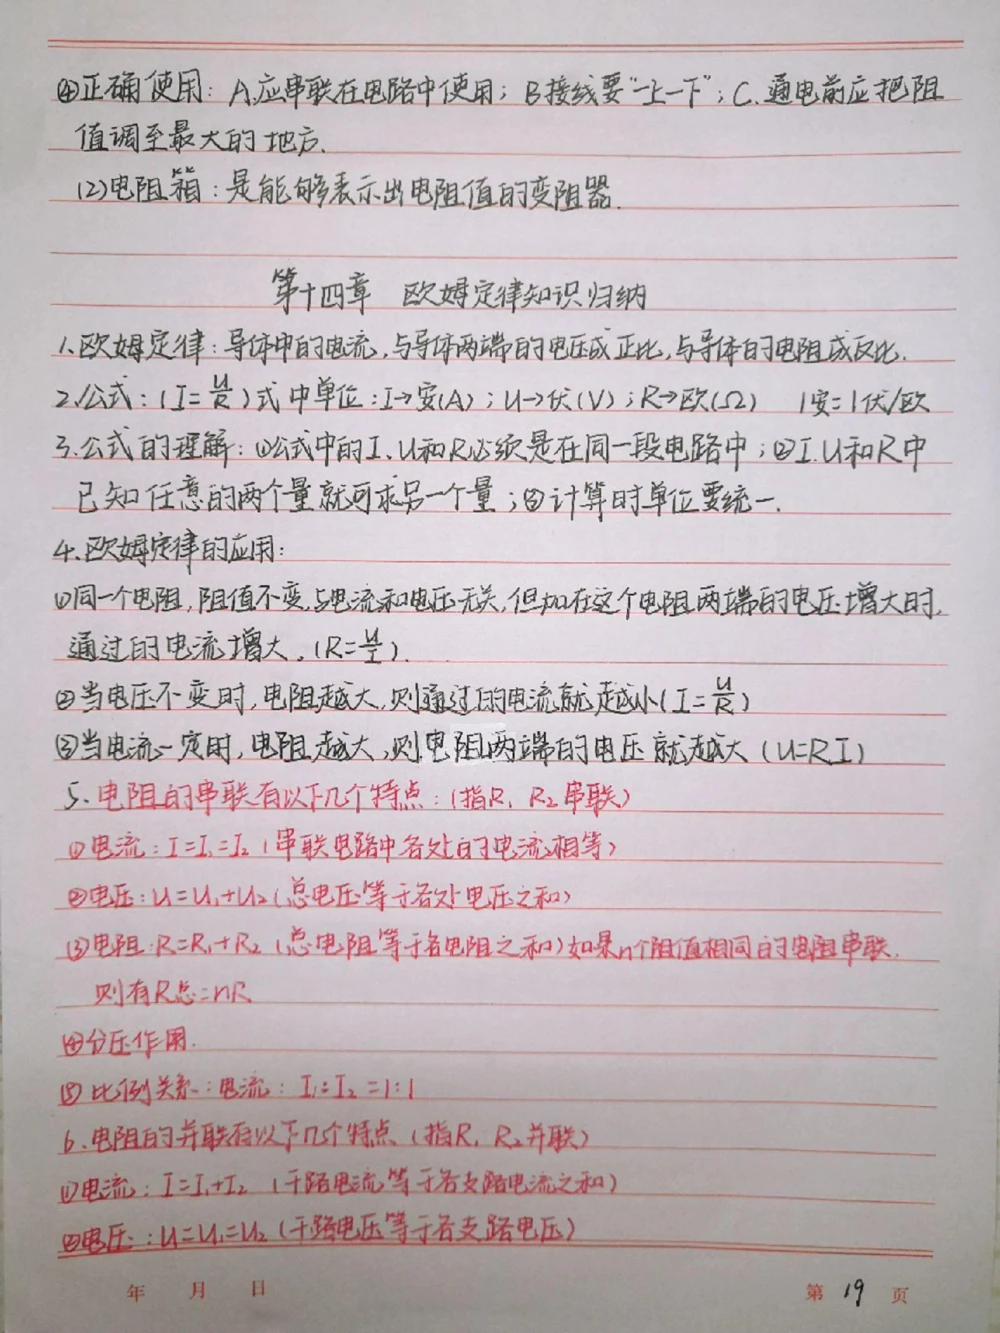 ④正确使用：A.应串联在电路中使用；B接线要"一上一下"；C.通电前应把阻
值调至最大的地方.
(2)电阻箱：是能够表示出电阻值的变阻器.
第十四章 欧姆定律知识归纳
1.欧姆定律：导体中的电流，与导体两端的电压成正比，与导体的电阻成反比.
2.公式：(I=U/R)式中单位：I→安(A)；U→伏(V)；R→欧(Ω) 1安=1伏/欧
3.公式的理解：①公式中的I、U和R必须是在同一段电路中；②I.U和R中
已知任意的两个量就可求另一个量；③计算时单位要统一.
4.欧姆定律的应用：
①同一个电阻，阻值不变，与电流和电压无关，但加在这个电阻两端的电压增大时，
通过的电流增大。(R=U/I).
②当电压不变时，电阻越大，则通过的电流就越小(I=U/R)
③当电流一定时，电阻越大，则电阻两端的电压就越大(U=RI)
5.电阻的串联有以下几个特点：(指R₁ R₂串联)
①电流：I=I₁=I₂(串联电路中各处的电流相等)
②电压：U=U₁+U₂(总电压等于各处电压之和)
③电阻：R=R₁+R₂(总电阻等于各电阻之和)如果n个阻值相同的电阻串联，
则有R总=nR
④分压作用.
⑤比例关系：电流：I₁：I₂=1:1
6.电阻的并联有以下几个特点(指R₁ R₂并联)
①电流：I=I₁+I₂ (干路电流等于各支路电流之和)
②电压：U=U₁=U₂(干路电压等于各支路电压)
年 月 日 第 19 页